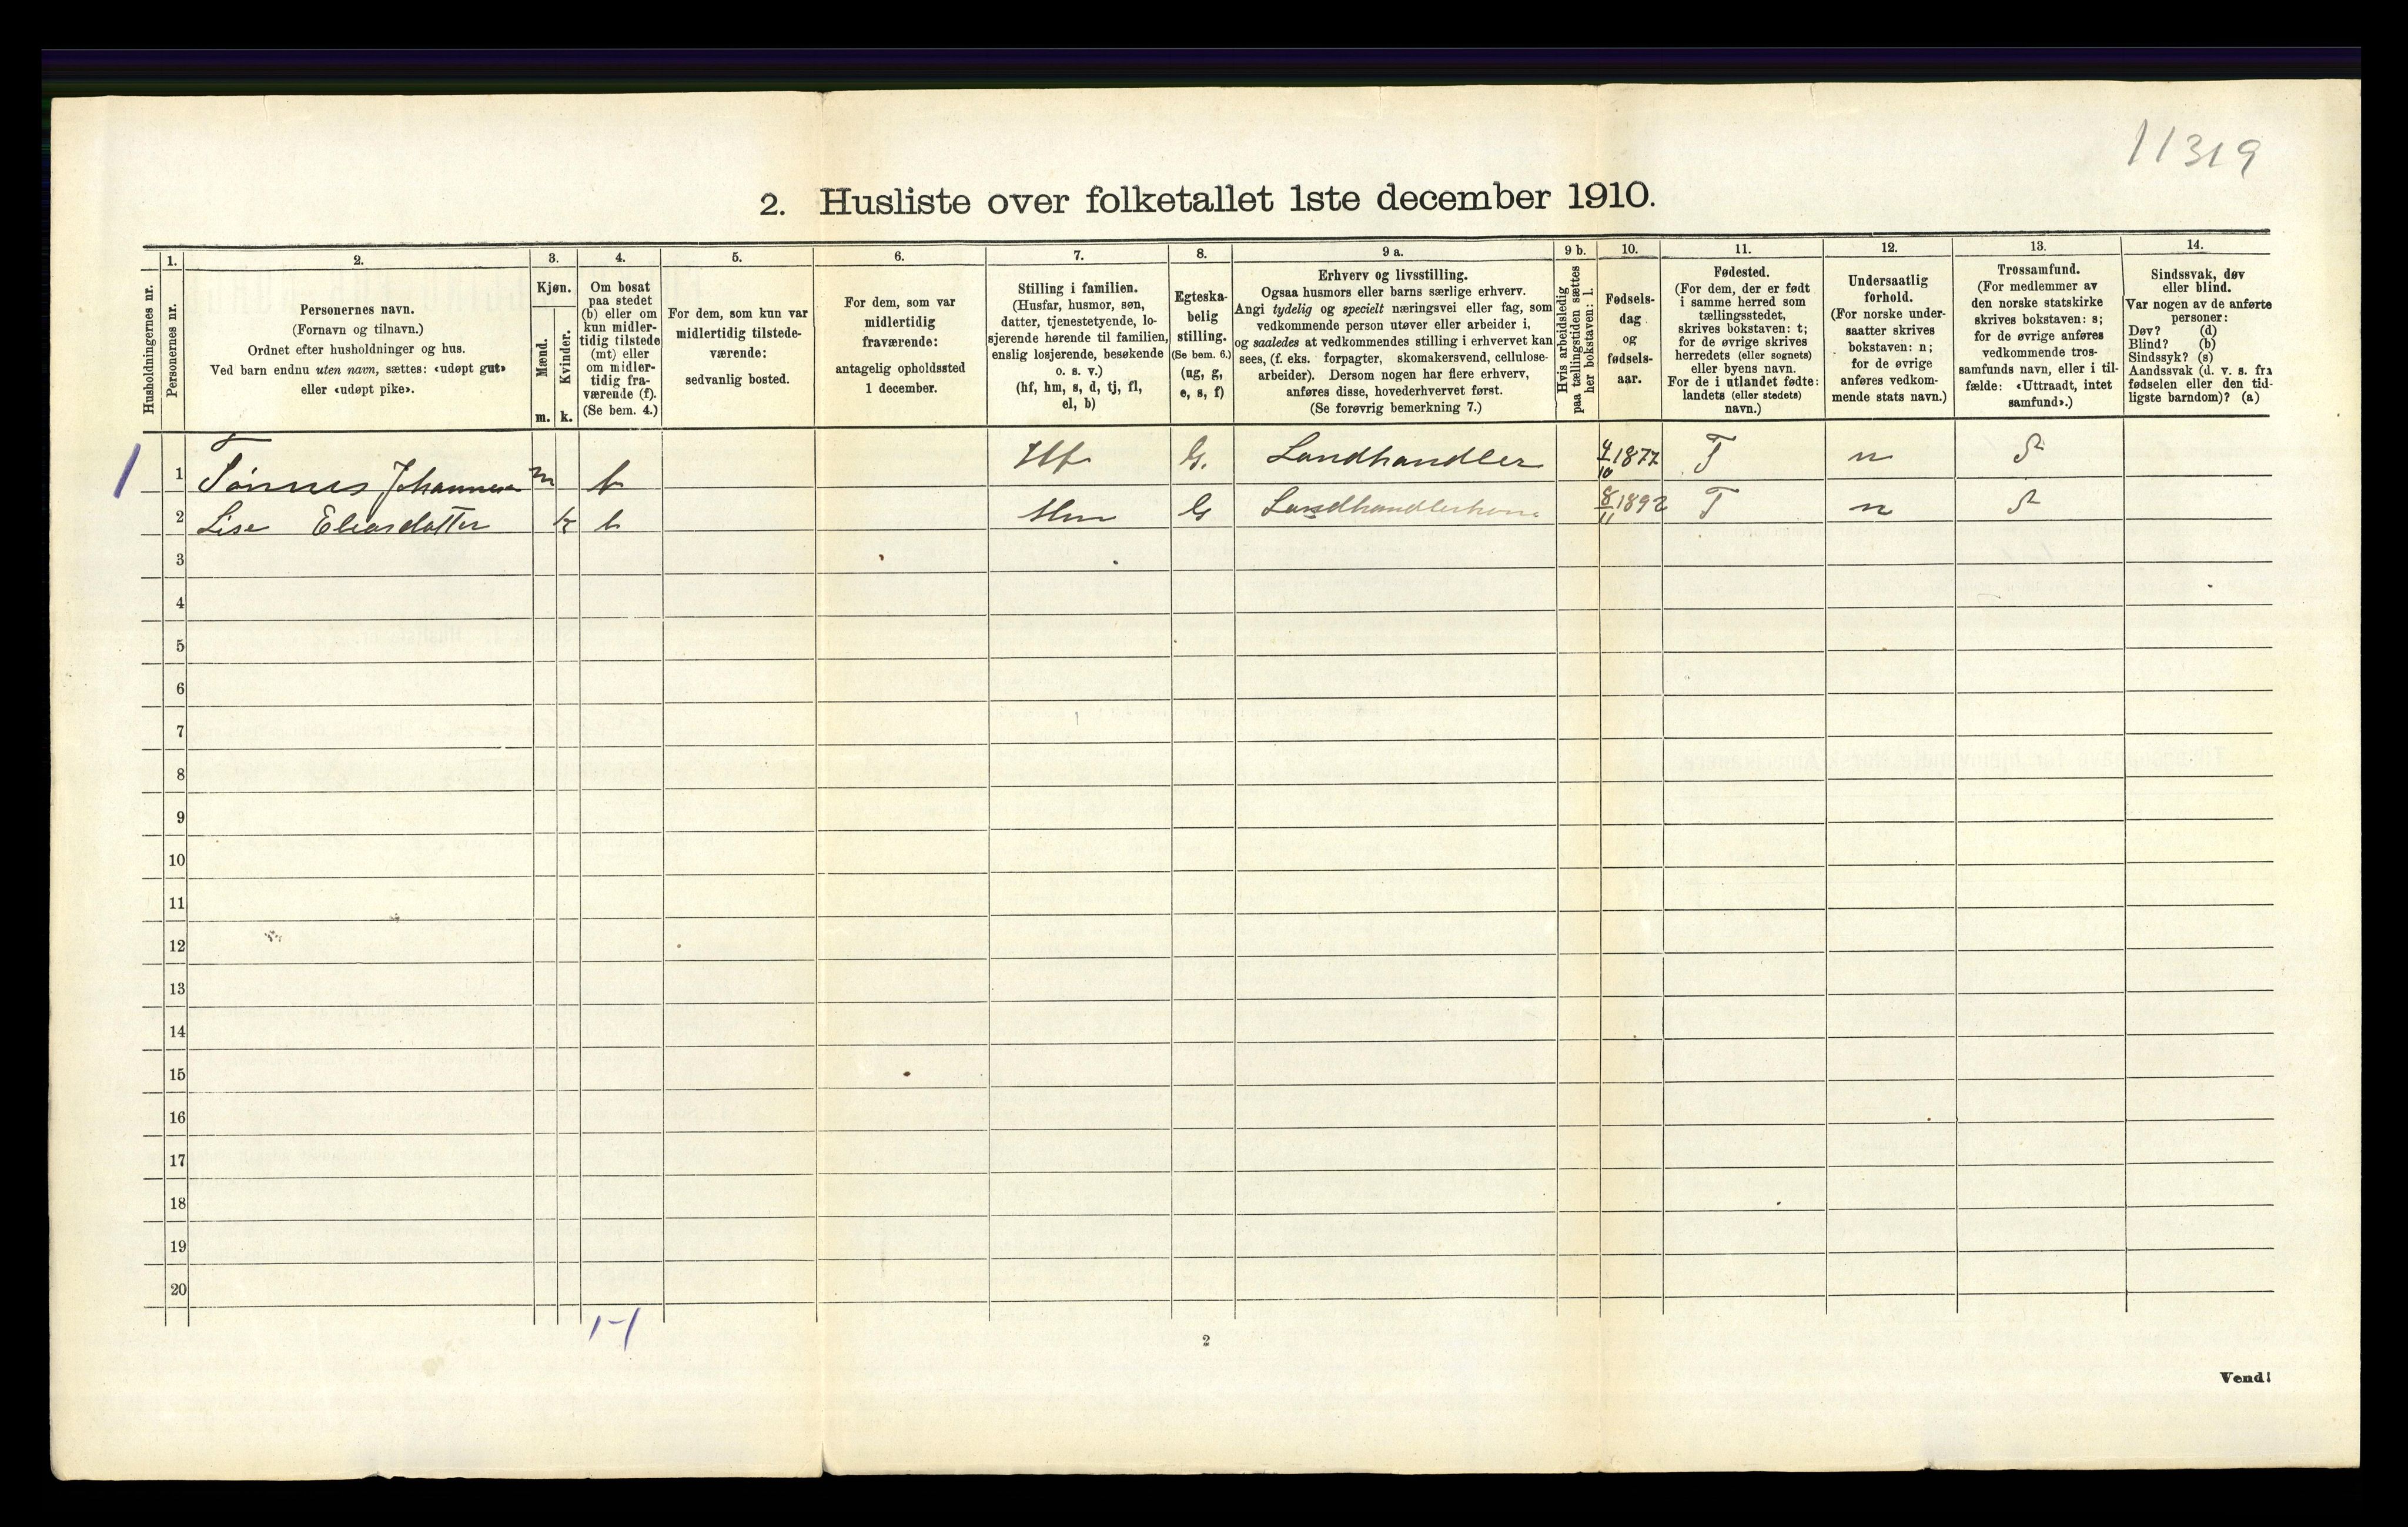 11319
2. Husliste over folketallet 1ste december 1910.
Husholdningernes nr.
1.
Personernes nr.
2.
Personernes navn.
(Fornavn og tilnavn.)
Ordnet efter husholdninger og hus.
Ved barn endnu uten navn, sættes: «udøpt gut»
eller «udøpt pike».
3.
Kjøn.
Mænd.
m.
Kvinder.
k.
4.
Om bosat
paa stedet
(b) eller om
kun midler-
tidig tilstede
(mt) eller
om midler-
tidig fra-
værende (f).
(Se bem. 4.)
5.
For dem, som kun var
midlertidig tilstede-
værende:
sedvanlig bosted.
6.
For dem, som var
midlertidig
fraværende:
antagelig opholdssted
1 december.
7.
Stilling i familien.
(Husfar, husmor, søn,
datter, tjenestetyende, lo-
sjerende hørende til familien,
enslig losjerende, besøkende
o. s. v.)
(hf, hm, s, d, tj, fl,
el, b)
8.
Egteska-
belig
stilling.
(Se bem. 6.)
(ug, g,
e, s, f)
9 a.
Erhverv og livsstilling.
Ogsaa husmors eller barns særlige erhverv.
Angi tydelig og specielt næringsvei eller fag, som
vedkommende person utøver eller arbeider i,
og saaledes at vedkommendes stilling i erhvervet kan
sees, (f. eks. forpagter, skomakersvend, cellulose-
arbeider). Dersom nogen har flere erhverv,
anføres disse, hovederhvervet først.
(Se forøvrig bemerkning 7.)
9 b.
Hvis arbeidsledig
paa tællingstiden sættes
her bokstaven: l.
10.
Fødsels-
dag
og
fødsels-
aar.
11.
Fødested.
(For dem, der er født
i samme herred som
tællingsstedet,
skrives bokstaven: t;
for de øvrige skrives
herredets (eller sognets)
eller byens navn.
For de i utlandet fødte:
landets (eller stedets)
navn.)
12.
Undersaatlig
forhold.
(For norske under-
saatter skrives
bokstaven: n;
for de øvrige
anføres vedkom-
mende stats navn.)
13.
Trossamfund.
(For medlemmer av
den norske statskirke
skrives bokstaven: s;
for de øvrige anføres
vedkommende tros-
samfunds navn, eller i til-
fælde: «Uttraadt, intet
samfund».)
14.
Sindssvak, døv
eller blind.
Var nogen av de anførte
personer:
Døv? (d)
Blind? (b)
Sindssyk? (s)
Aandssvak (d. v. s. fra
fødselen eller den tid-
ligste barndom)? (a)
1 1 Tønnes Johannesen m b Hf G. Landhandler 4/10 1877 T n S
2 Lise Eliasdatter k b Hm G Landhandlerkone 8/11 1892 T n S
3
4
5
6
7
8
9
10
11
12
13
14
15
16
17
18
19
20
1-1
2
Vend!